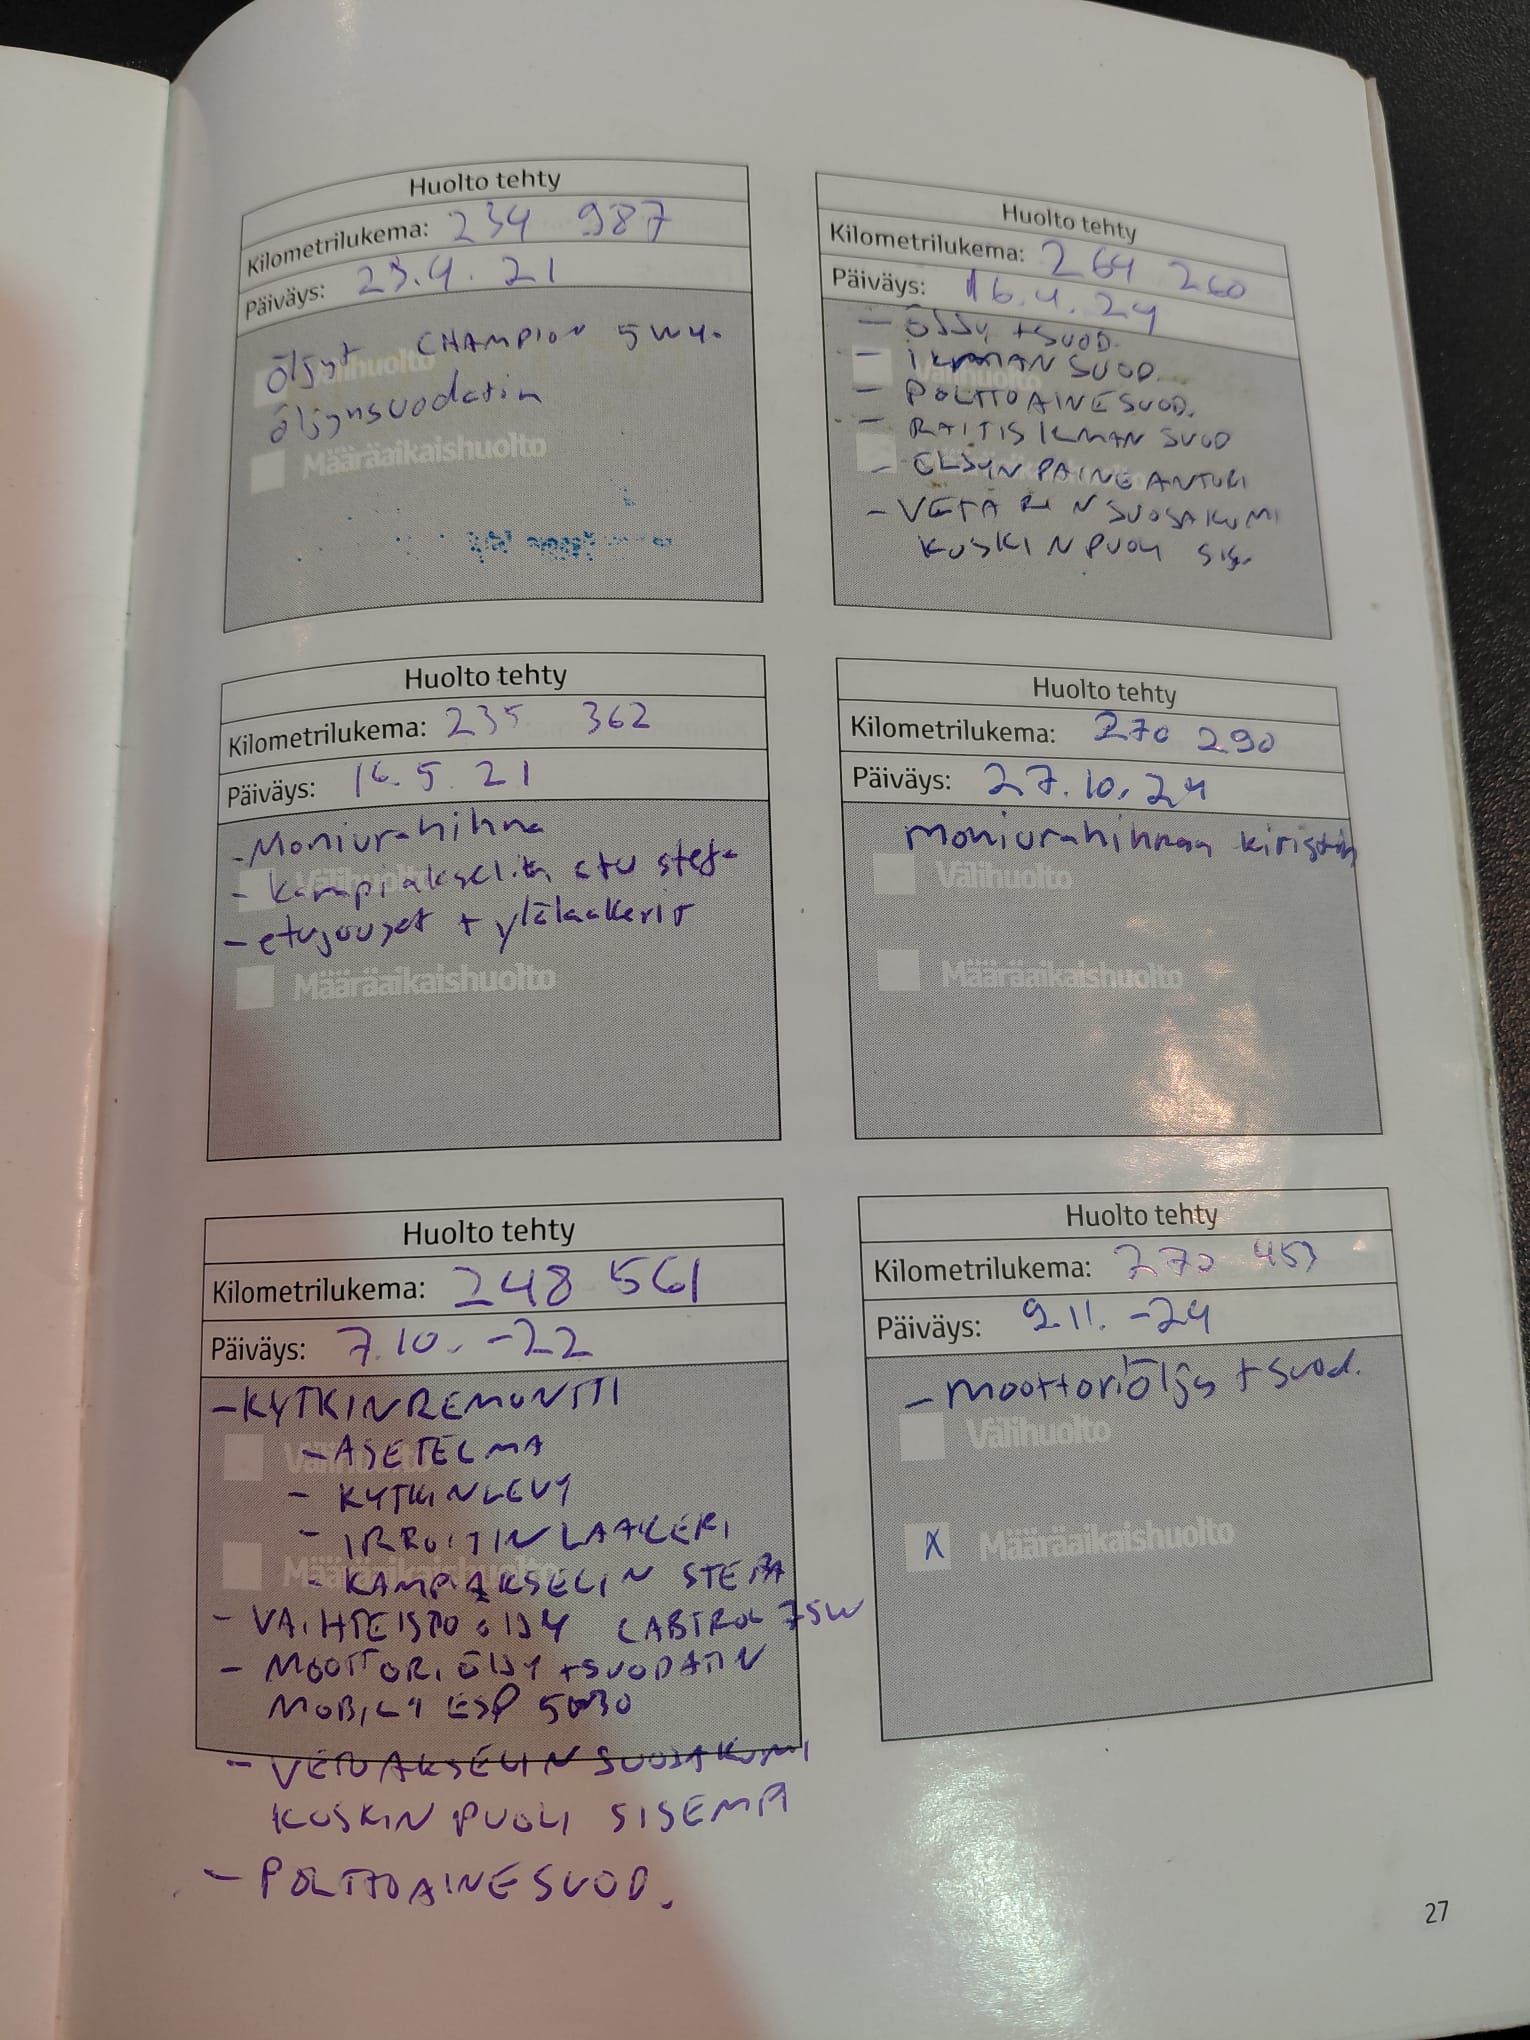 Huolto tehty
Kilometrilukema: 234 987
Päiväys: 23.4.21
öljyt CHAMPION 5W4.
Välihuolto
öljynsuodatin
Määräaikaishuolto
Huolto tehty
Kilometrilukema: 235 362
Päiväys: 16.5.21
- Moniurahihna
- kampiakselin etu stefa
Välihuolto
- etujouset + ylälaakerit
Määräaikaishuolto
Huolto tehty
Kilometrilukema: 248 561
Päiväys: 7.10.-22
- KYTKINREMONTTI
Välihuolto
- ASETELMA
- KYTKINLEVY
- IRROITINLAAKERI
Määräaikaishuolto
- KAMPIAKSELIN STEFA
- VAIHTEISTOÖLJY 75W
- MOOTTORIÖLJY + SUODATIN
MOBIL 1 ESP 5W30
- VETOAKSELIN SUOJAKUMI
KUSKIN PUOLI SISEMPÄ
- POLTTOAINESUOD.
Huolto tehty
Kilometrilukema: 264 260
Päiväys: 16.4.24
- ÖLJY + SUOD.
- ILMANSUOD.
Välihuolto
- POLTTOAINESUOD.
- RAITISILMANSUOD
- ÖLJYNPAINEANTURI
- SUOJAKUMI
KUSKIN PUOLI SIS.
Huolto tehty
Kilometrilukema: 270 290
Päiväys: 27.10.24
Moniurahihnan kiristin
Välihuolto
Määräaikaishuolto
Huolto tehty
Kilometrilukema: 270 453
Päiväys: 9.11.-24
- Moottoriöljy + suod.
Välihuolto
X Määräaikaishuolto
27